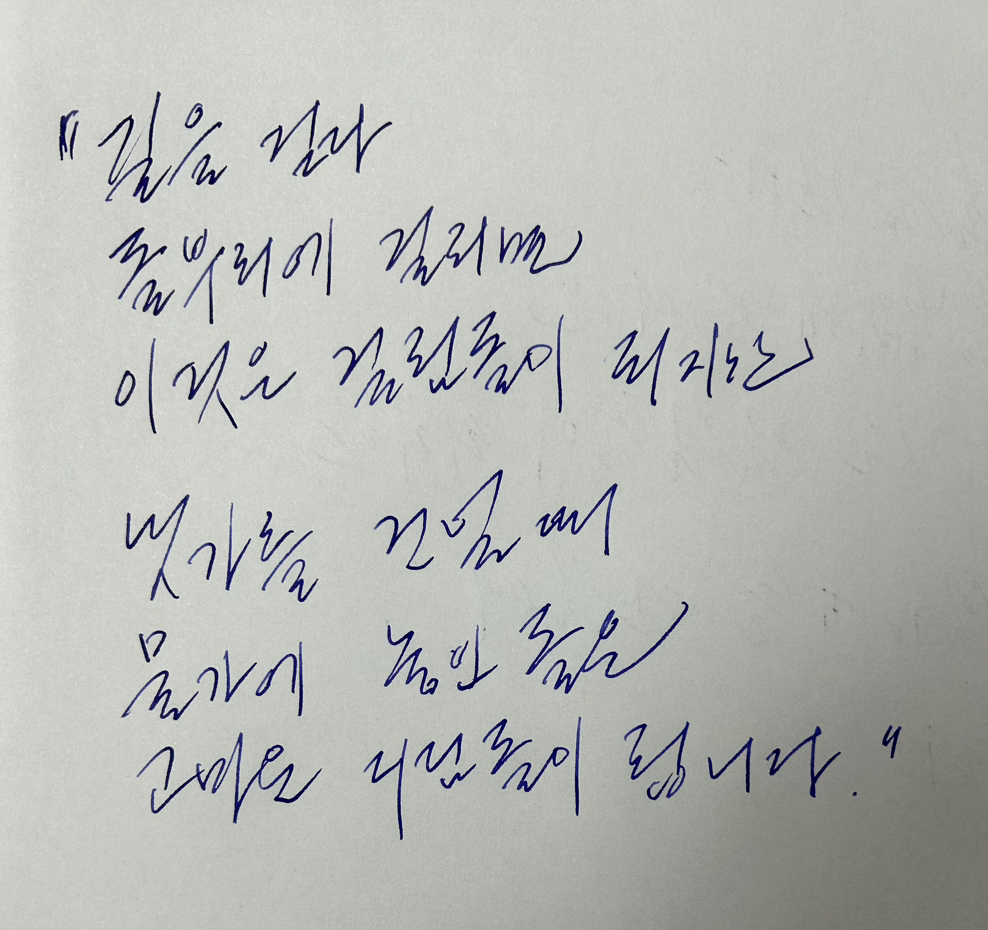 "길을 걷다
돌부리에 걸리면
이것은 걸림돌이 되지만
냇가를 건널 때
물가에 놓인 돌은
고마운 디딤돌이 됩니다."